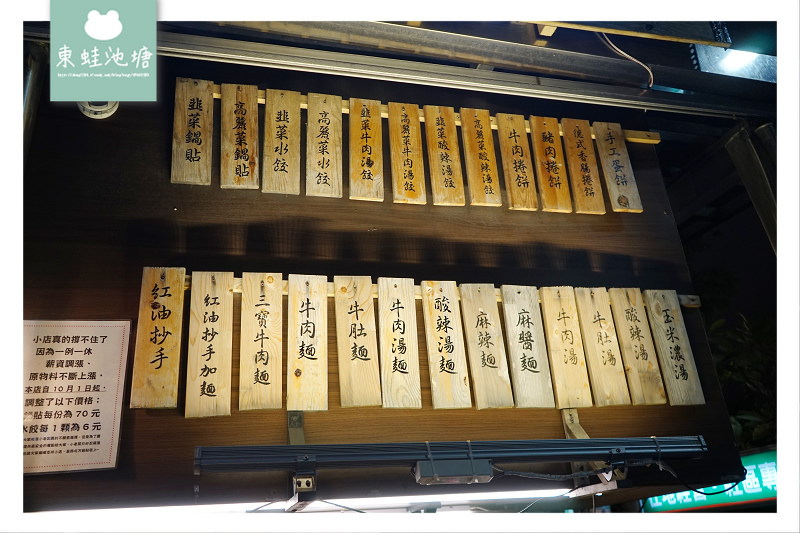 東蛙池塘
韭菜鍋貼
高麗菜鍋貼
韭菜水餃
高麗菜水餃
韭菜牛肉湯餃
高麗菜牛肉湯餃
韭菜酸辣湯餃
高麗菜酸辣湯餃
牛肉捲餅
豬肉捲餅
德式香腸捲餅
手工蛋餅
紅油抄手
紅油抄手加麵
三寶牛肉麵
牛肉麵
牛肚麵
牛肉湯麵
酸辣湯麵
麻辣麵
麻醬麵
牛肉湯
牛肚湯
酸辣湯
玉米濃湯
小店真的撐不住了
因為一例一休
薪資調漲，
原物料不斷上漲，
本店自10月1日起，
調整了以下價格：
貼每份為70元
水餃每1顆為6元